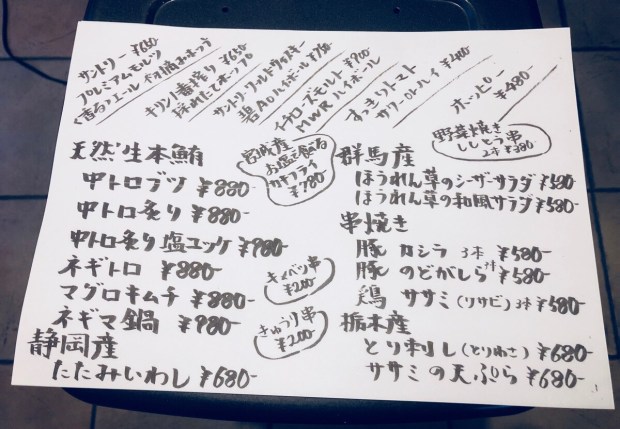 サントリー ¥650
プレミアムモルツ
〈香る〉エール 初摘みホップ
キリン一番搾り ¥650
採れたてホップ
サントリーワールドウイスキー
碧Aoハイボール ¥750
イチローズモルト ¥900
MWRハイボール
すっきりトマト
サワーorハイ ¥480
ホッピー
¥480-
野菜焼き
ししとう串
2本¥380-
天然生本鮪
中トロブツ ¥880-
中トロ炙り ¥880-
中トロ炙り塩ユッケ ¥980-
ネギトロ ¥880-
マグロキムチ ¥880-
ネギマ鍋 ¥980-
静岡産
たたみいわし ¥680-
宮城産
カキフライ
¥780-
キャベツ串
¥200-
きゅうり串
¥200-
群馬産
ほうれん草のシーザーサラダ ¥580-
ほうれん草の和風サラダ ¥580-
串焼き
豚 カシラ 3本 ¥580-
豚 のどがしら ¥580-
鶏 ササミ(リサビ)3本 ¥580-
栃木産
とり刺し(とりわさ) ¥680-
ササミの天ぷら ¥680-